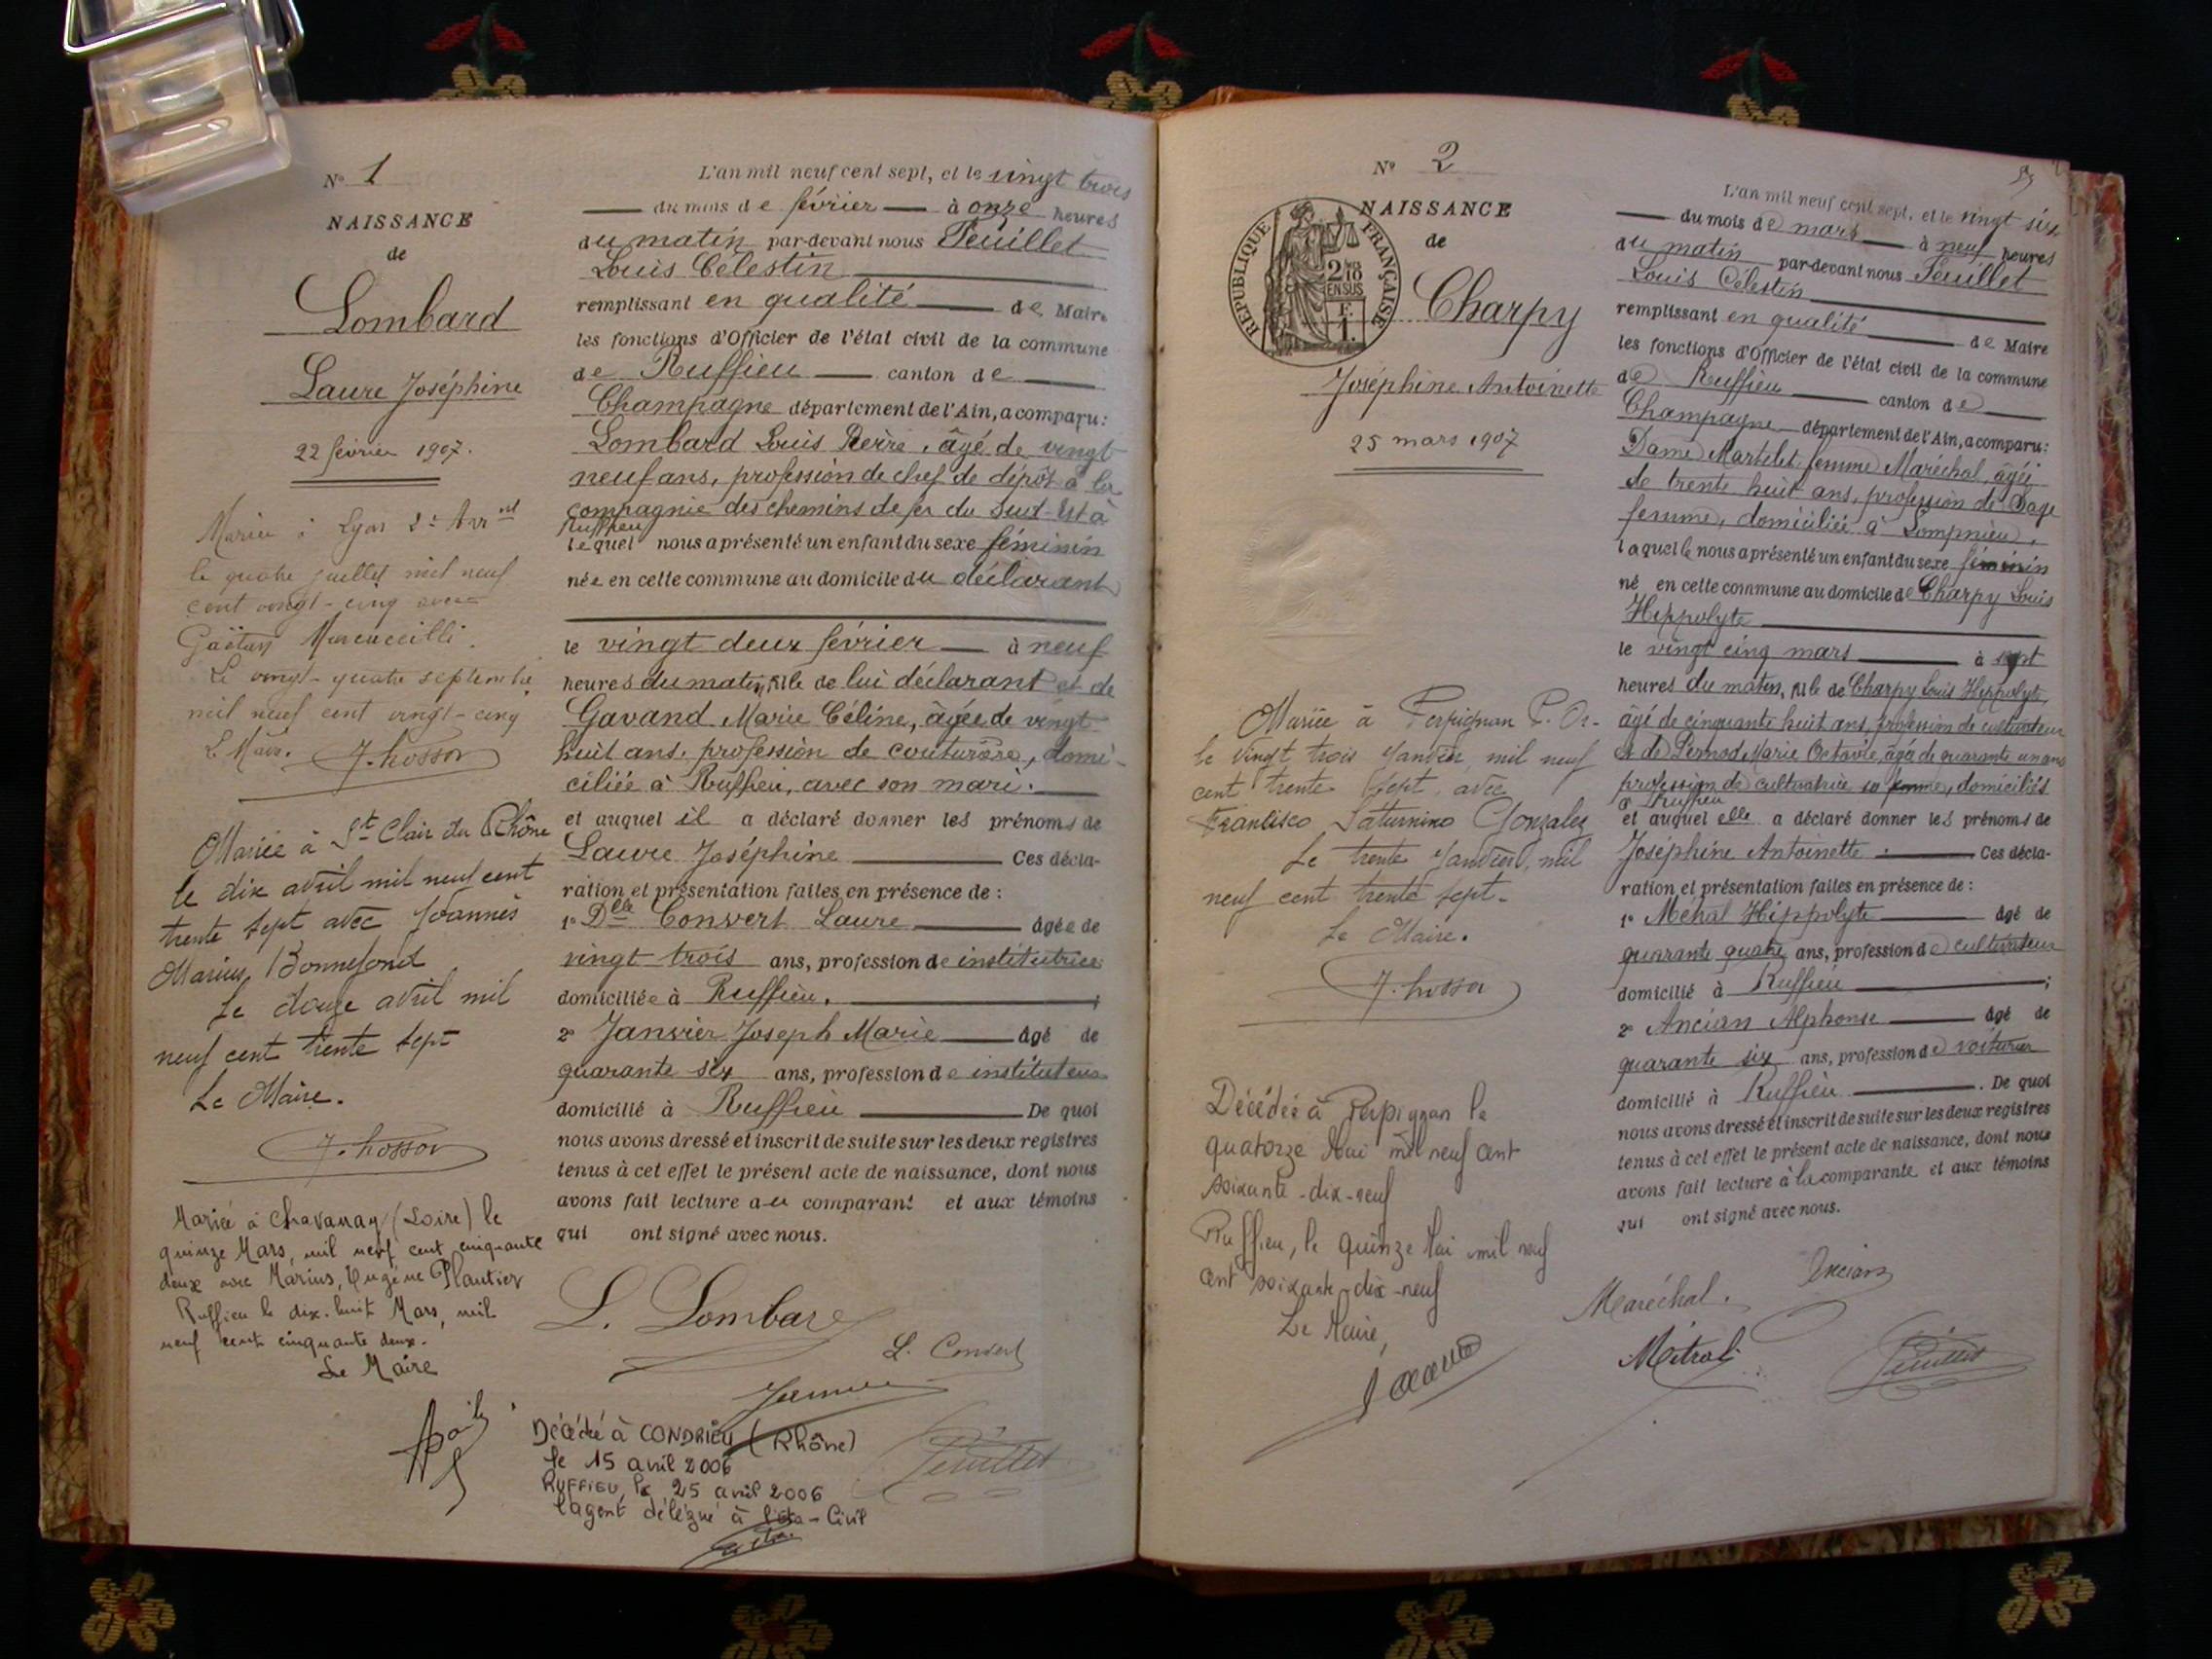 N° 1
NAISSANCE
de
Lombard
Laure Joséphine
22 février 1907.
Mariée à Lyon 2e Arr nt
le quatre juillet mil neuf
cent vingt-cinq avec
Gaëtan
Le vingt-quatre septembre
mil neuf cent vingt-cinq
Le Maire. J. hosson
Mariée à St Clair du Rhône
le dix avril mil neuf cent
trente sept avec Joannès
Marius, Bonnefond
Le douze avril mil
neuf cent trente sept
Le Maire.
J. hosson
Mariée à Chavanay (Loire) le
quinze Mars, mil neuf cent cinquante
deux avec Marius, Eugène Plantier
Ruffieu le dix-huit Mars, mil
neuf cent cinquante deux.
Le Maire
L'an mil neuf cent sept, et le vingt trois
du mois de février à onze heures
du matin par-devant nous Feuillet
Louis Célestin
remplissant en qualité de Maire
les fonctions d'Officier de l'état civil de la commune
de Ruffieu canton de
Champagne département de l'Ain, a comparu:
Lombard Louis Pierre, âgé de vingt
neuf ans, profession de chef de dépôt à la
compagnie des chemins de fer du Sud-Est à
Ruffieu
lequel nous a présenté un enfant du sexe féminin
née en cette commune au domicile du déclarant
le vingt deux février à neuf
heures du matin, fille de lui déclarant et de
Gavand Marie Céline, âgée de vingt
huit ans, profession de couturière, domi-
ciliée à Ruffieu, avec son mari.
et auquel il a déclaré donner les prénoms de
Laure Joséphine Ces décla-
ration et présentation faites en présence de :
1° Dlle Convert Laure âgée de
vingt trois ans, profession de institutrice
domiciliée à Ruffieu. ;
2° Janvier Joseph Marie âgé de
quarante six ans, profession de instituteur
domicilié à Ruffieu De quoi
nous avons dressé et inscrit de suite sur les deux registres
tenus à cet effet le présent acte de naissance, dont nous
avons fait lecture au comparant et aux témoins
qui ont signé avec nous.
L. Lombard
L. Convert
Janvier
Feuillet
Décédée à CONDRIEU (Rhône)
le 15 avril 2006
RUFFIEU, le 25 avril 2006
l'agent délégué à l'Eta-Civil
N° 2
NAISSANCE
de
RÉPUBLIQUE FRANÇAISE
2/10
EN SUS
F.
1.
Charpy
Joséphine Antoinette
25 mars 1907
Mariée à Perpignan P. Or.
le vingt trois Janvier, mil neuf
cent trente sept, avec
Francisco Saturnino Gonzalez
Le trente Janvier, mil
neuf cent trente sept.
Le Maire.
J. hosson
Décédée à Perpignan le
quatorze Mai mil neuf cent
soixante-dix-neuf
Ruffieu, le quinze Mai mil neuf
cent soixante-dix-neuf
Le Maire,
L'an mil neuf cent sept, et le vingt six
du mois de mars à neuf heures
du matin par-devant nous Feuillet
Louis Célestin
remplissant en qualité de Maire
les fonctions d'Officier de l'état civil de la commune
de Ruffieu canton de
Champagne département de l'Ain, a comparu:
Dame Martelet femme Maréchal, âgée
de trente huit ans, profession de Sage
femme, domiciliée à Lompnieu,
laquelle nous a présenté un enfant du sexe féminin
né en cette commune au domicile de Charpy Louis
Hippolyte
le vingt cinq mars à sept
heures du matin, fille de Charpy Louis Hippolyte,
âgé de cinquante huit ans, profession de cultivateur
et de Pernod Marie Octavie, âgée de quarante un ans
profession de cultivatrice sa femme, domiciliés
à Ruffieu
et auquel elle a déclaré donner les prénoms de
Joséphine Antoinette. Ces décla-
ration et présentation faites en présence de :
1° Métral Hippolyte âgé de
quarante quatre ans, profession de cultivateur
domicilié à Ruffieu ;
2° Ancian Alphonse âgé de
quarante six ans, profession de voiturier
domicilié à Ruffieu . De quoi
nous avons dressé et inscrit de suite sur les deux registres
tenus à cet effet le présent acte de naissance, dont nous
avons fait lecture à la comparante et aux témoins
qui ont signé avec nous.
Maréchal.
Ancian
Métral
Feuillet